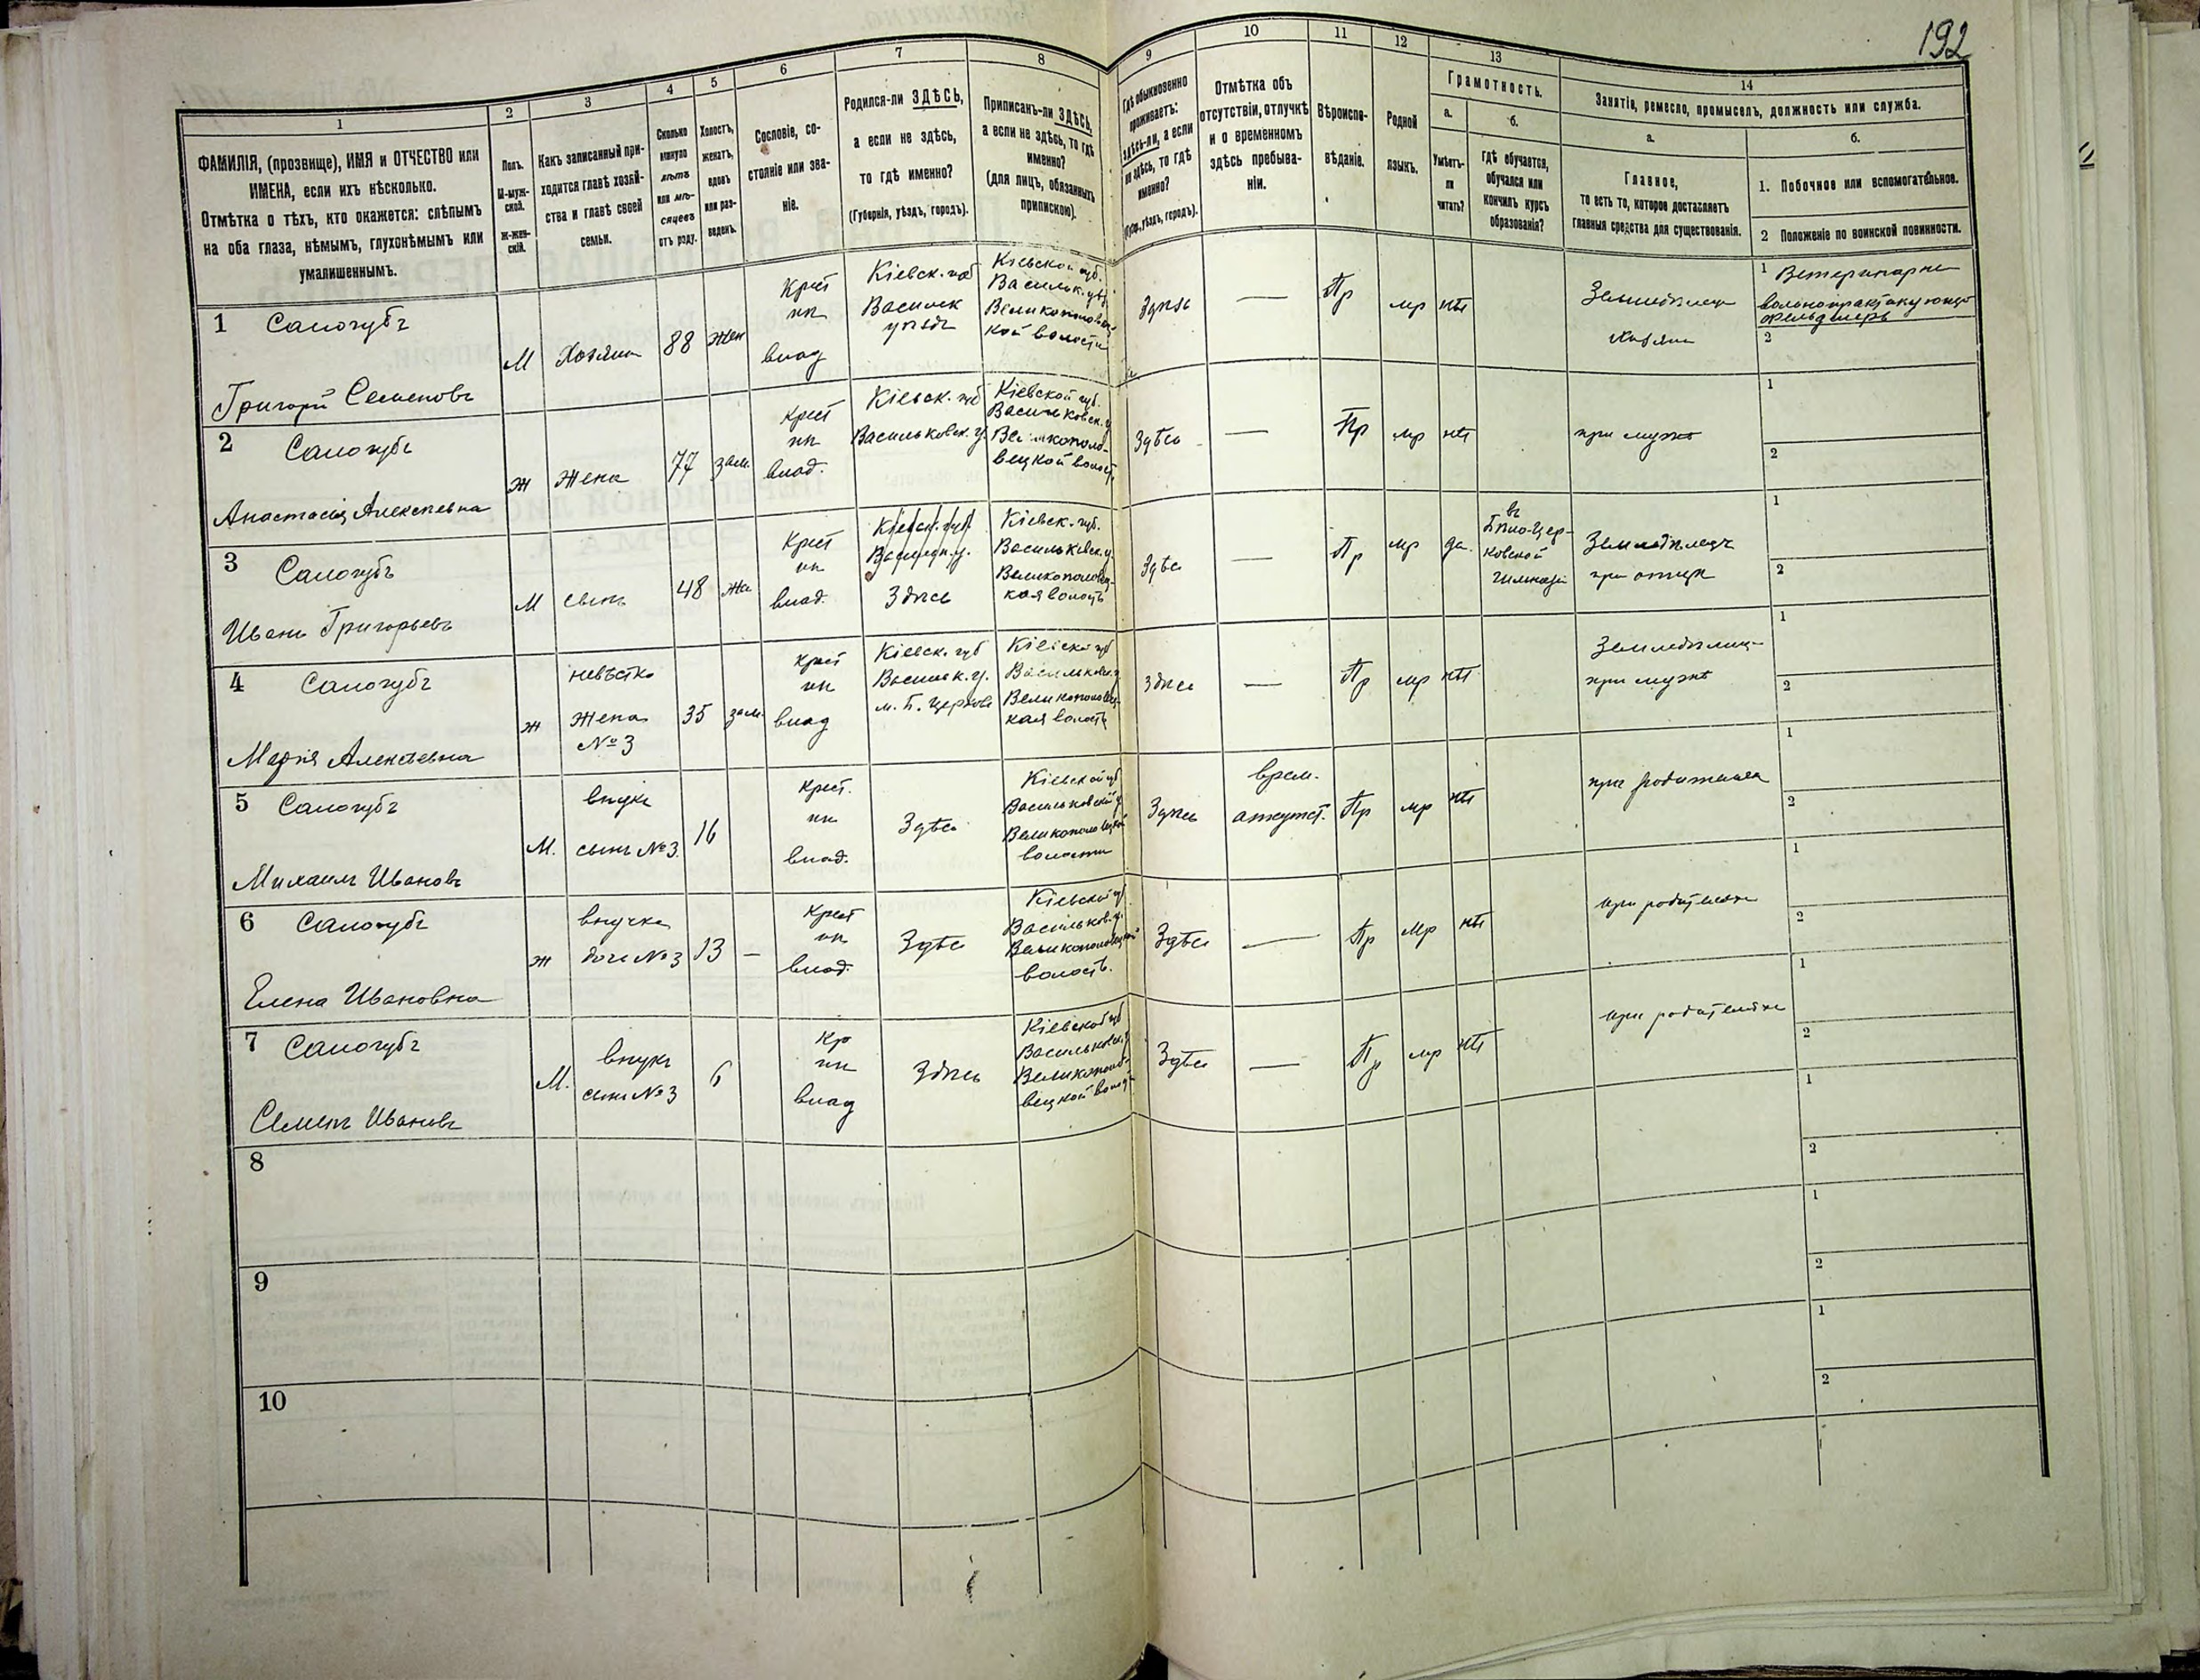 192
1 2 3 4 5 6 7 8 9 10 11 12 13 14
ФАМИЛІЯ, (прозвище), ИМЯ и ОТЧЕСТВО или
ИМЕНА, если ихъ нѣсколько.
Отмѣтка о тѣхъ, кто окажется: слѣпымъ
на оба глаза, нѣмымъ, глухонѣмымъ или
умалишеннымъ.
Полъ.
М-муж-
ской.
Ж-жен-
скій.
Какъ записанный при-
ходится главѣ хозяй-
ства и главѣ своей
семьи.
Сколько
минуло
лѣтъ
или мѣ-
сяцевъ
отъ роду.
Холостъ,
женатъ,
вдовъ
или раз-
веденъ.
Сословіе, со-
стояніе или зва-
ніе.
Родился-ли ЗДѢСЬ,
а если не здѣсь,
то гдѣ именно?
(Губернія, уѣздъ, городъ).
Приписанъ-ли ЗДѢСЬ,
а если не здѣсь, то гдѣ
именно?
(для лицъ, обязанныхъ
припискою).
Гдѣ обыкновенно
проживаетъ:
здѣсь-ли, а если
не здѣсь, то гдѣ
именно?
(Губ., уѣздъ, городъ).
Отмѣтка объ
отсутствіи, отлучкѣ
и о временномъ
здѣсь пребыва-
ніи.
Вѣроиспо-
вѣданіе.
Родной
языкъ.
Грамотность.
а.
Умѣетъ-
ли
читать?
б.
Гдѣ обучается,
обучался или
кончилъ курсъ
образованія?
Занятіе, ремесло, промыселъ, должность или служба.
а.
Главное,
то есть то, которое доставляетъ
главныя средства для существованія.
б.
1. Побочное или вспомогательное.
2 Положеніе по воинской повинности.
1 Самогубъ
Григорій Семеновъ
М
Хозяин
88
жен
Крест
ин
влад
Кіевск. губ
Васильк
уѣздъ
Кіевской губ.
Васильк. уѣз
Великополовец-
кой волости
Здѣсь
—
Пр
мр
нѣт
Земледѣлец
хозяин
1 Ветеринарн
вольнопрактикующ
фельдшеръ
2
2 Самогубъ
Анастасія Алексѣевна
ж
Жена
77
зам.
Крест
ин
влад.
Кіевск. губ
Васильковск. у.
Кіевской губ.
Васильковск. у
Великополо-
вецкой волост.
Здѣсь
—
Пр
мр
нѣт
при мужѣ
1
2
3 Самогубъ
Иванъ Григорьевъ
М
сынъ
48
же
Крест
ин
влад.
Здѣсь
Кіевск. губ.
Васильковск. у
Великополовец-
кая волость
Здѣсь
—
Пр
мр
да.
въ
Бѣло-Цер-
ковской
гимназіи
Земледѣлецъ
при отцѣ
1
2
4 Самогубъ
Марія Алексѣевна
ж
невѣстка
Жена
№ 3
35
зам.
Крест
ин
влад
Кіевск. губ
Васильк. у.
м. Б. Церковь
Кіевской губ
Васильковск. у
Великополовец-
кая волость
Здѣсь
—
Пр
мр
нѣт
Земледѣлица
при мужѣ
1
2
5 Самогубъ
Михаилъ Ивановъ
М.
внукъ
сынъ № 3.
16
Крест.
ин
влад.
Здѣсь
Кіевской губ
Васильковской у
Великополовецкой
волости
Здѣсь
врем.
отсутст.
Пр
мр
нѣт
при родителях
1
2
6 Самогубъ
Елена Ивановна
ж
внучка
дочь № 3
13
—
Крест
ин
влад.
Здѣсь
Кіевской губ
Васильков. у.
Великополовецкой
волость.
Здѣсь
—
Пр
мр
нѣт
при родителях
1
2
7 Самогубъ
Семенъ Ивановъ
М.
внукъ
сынъ № 3
6
Кр
ин
влад
Здѣсь
Кіевской губ
Васильковск. у
Великополо-
вецкой волост
Здѣсь
—
Пр
мр
нѣт
при родителях
1
2
8
1
2
9
1
2
10
1
2